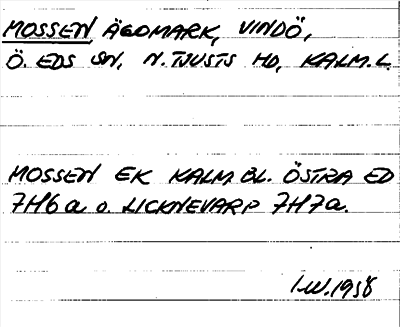 MOSSEN, ÄGOMARK, VINDÖ,
Ö. EDS SN, N. TJUSTS HD, KALM. L.
MOSSEN EK KALM. BL. ÖSTRA ED
7H6a o. LICKNEVARP 7H7a.
I.W. 1958